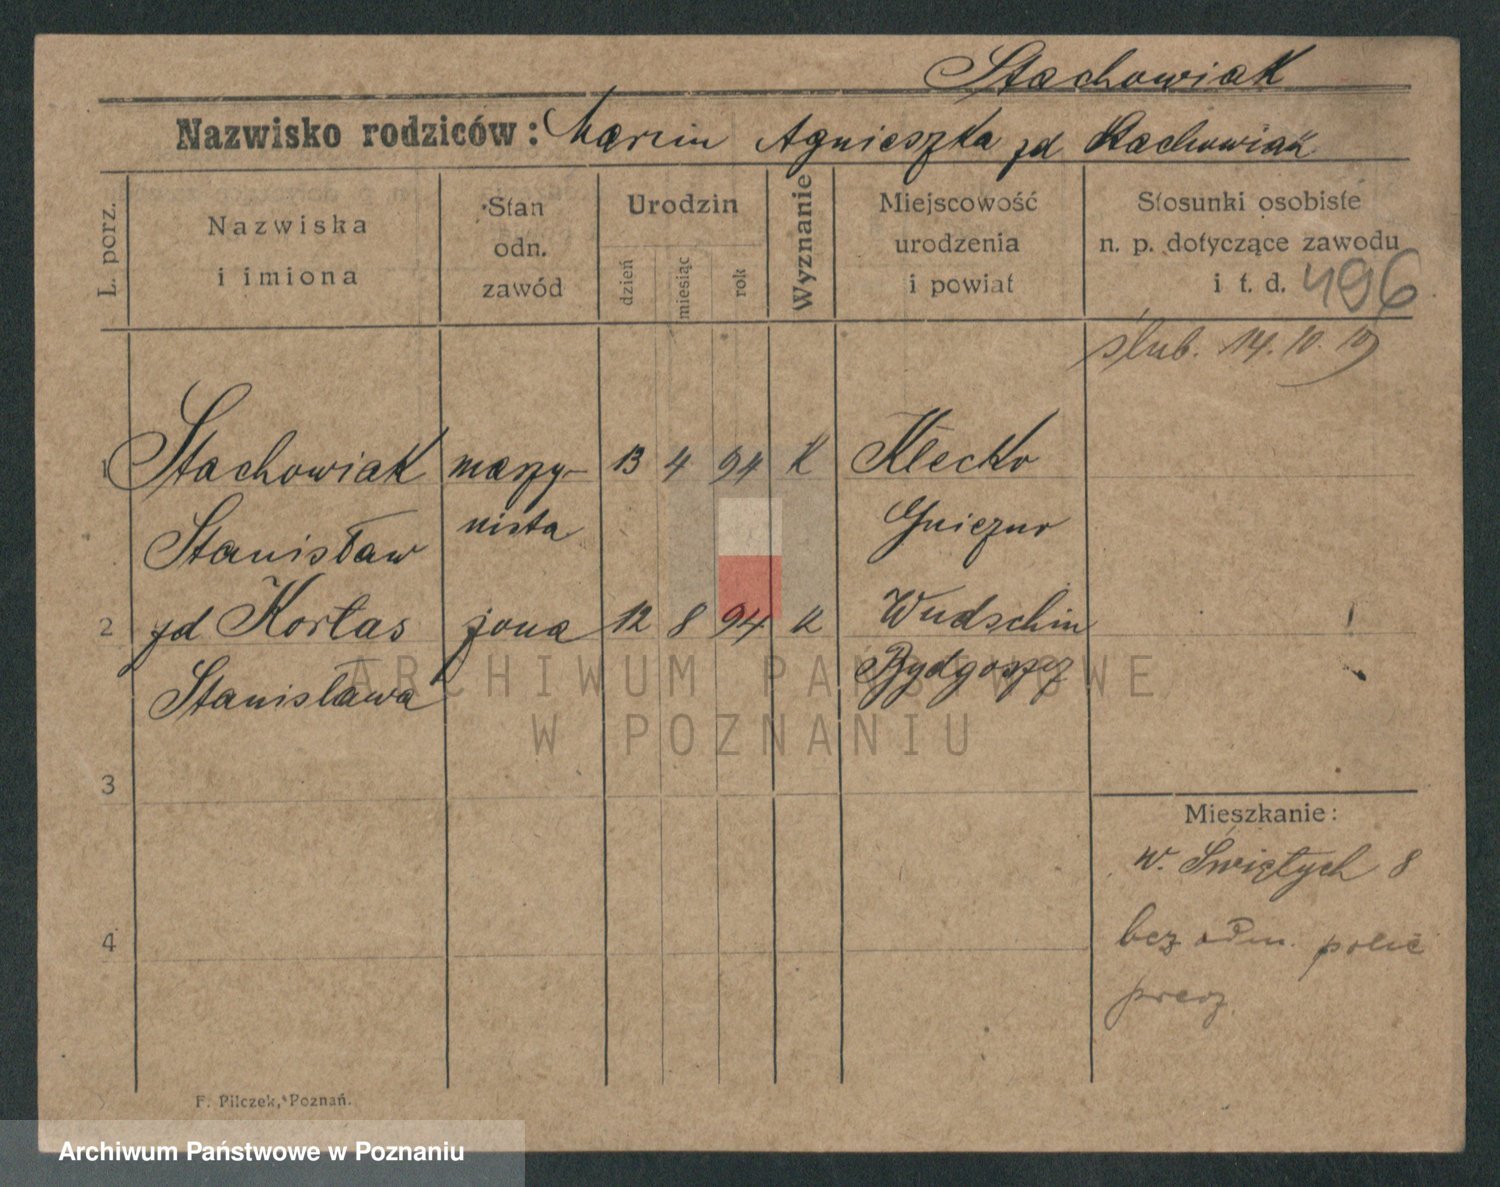 Stachowiak
Nazwisko rodziców: Marcin Agnieszka zd Stachowiak
L. porz.
Nazwiska
i imiona
Stan
odn.
zawód
Urodzin
dzień
miesiąc
rok
Wyznanie
Miejscowość
urodzenia
i powiat
Stosunki osobiste
n. p. dotyczące zawodu
i t. d. 496
ślub. 14. 10. 19
1 Stachowiak maszy- 13 4 94 K Kłecko
Stanisław nista Gniezno
2 zd Kortas żona 12 8 94 K Wudschin
Stanisława Bydgoszcz
3
Mieszkanie:
W. Świętych 8
4 bez odm. polic
F. Pilczek, Poznań.
ARCHIWUM PAŃSTWOWE
W POZNANIU
Archiwum Państwowe w Poznaniu